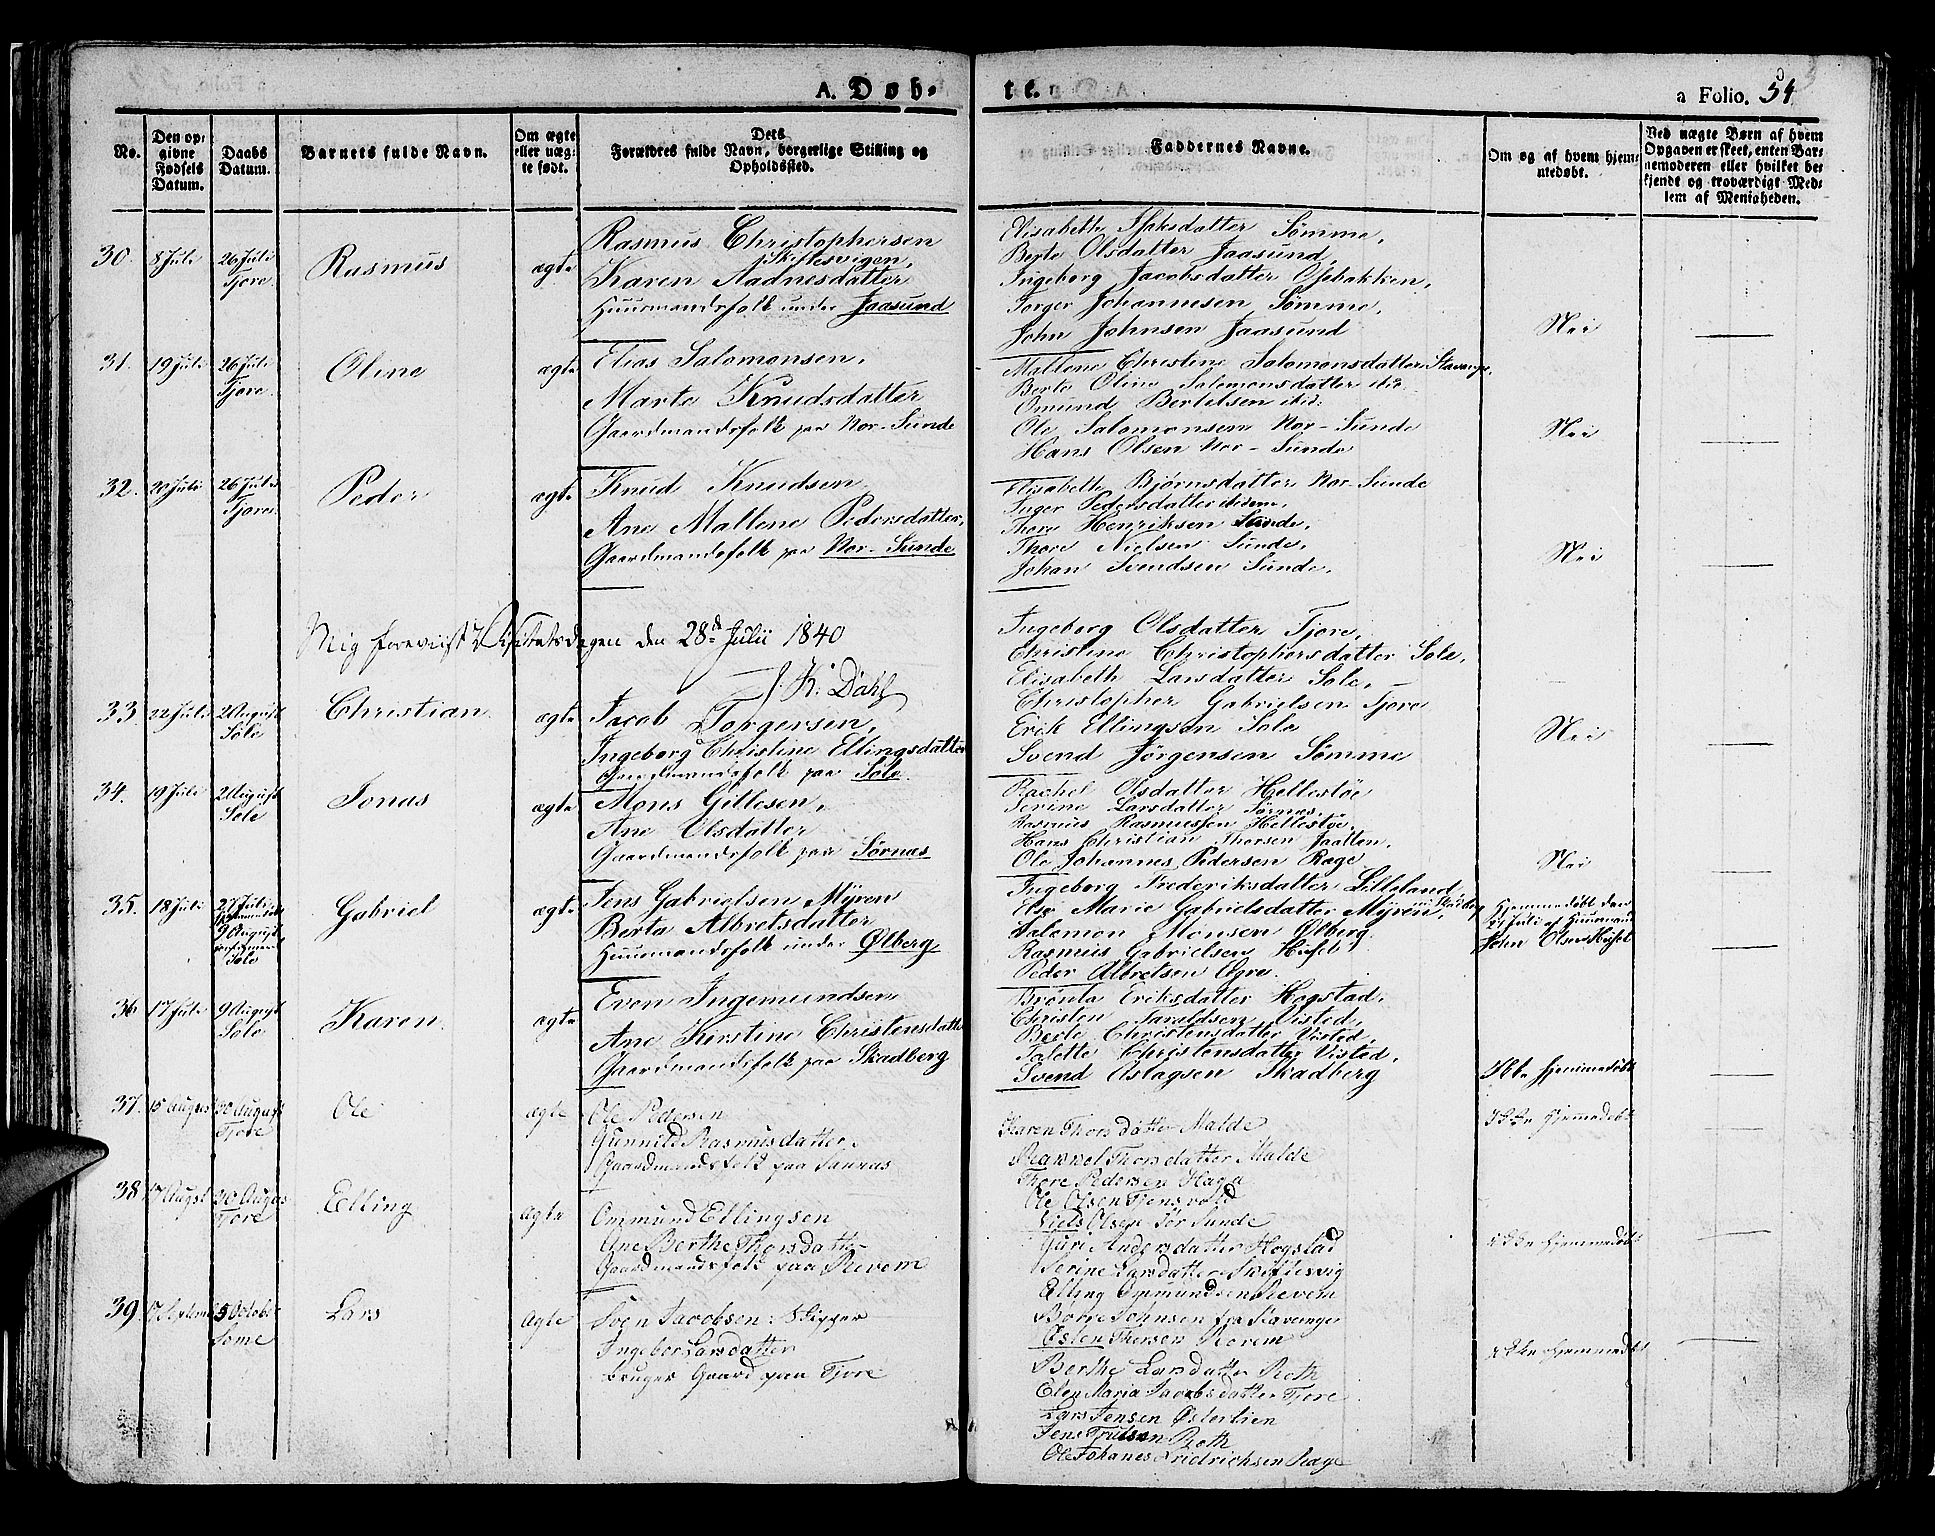 A. Døb-
te.
a Folio. 54
No.
Den op-
givne
Fødsels
Datum.
Daabs
Datum.
Barnets fulde Navn.
Om ægte
eller uæg-
te født.
Dets
Forældres fulde Navn, borgerlige Stilling og
Opholdssted.
Faddernes Navne.
Om og af hvem hjem-
medøbt.
Ved uægte Børn af hvem
Opgaven er skeet, enten Bar-
nemoderen eller hvilket be-
kjendt og troværdigt Med-
lem af Menigheden.
30. 8 Juli 26 Juli
Tjore
Rasmus ægte
Rasmus Christophersen
Skiftesvigen,
Karen Aadnesdatter
Huusmandsfolk under Jaasund
Elisabeth Isaksdatter Sømme,
Berte Olsdatter Jaasund,
Ingeborg Jacobsdatter Osebakken,
Torger Johannesen Sømme,
John Johnsen Jaasund
Nei
31. 19 Juli 26 Juli
Tjore
Oline ægte
Elias Salomonsen,
Marta Knudsdatter
Gaardmandsfolk paa Nor-Sunde
Mallene Christine Salomonsdatter Stavanger,
Berte Oline Salomonsdatter ibid.
Omund Bertelsen ibid:
Ole Salomonsen Nor-Sunde
Hans Olsen Nor-Sunde
Nei
32. 20 Juli 26 Juli
Tjore
Peder ægte
Knud Knudsen
Ane Mallene Pedersdatter,
Gaardmandsfolk paa Nor-Sunde
Elisabeth Bjørnsdatter Nor-Sunde
Inger Pedersdatter ibidem,
Thore Henriksen Sunde,
Thore Nielsen Sunde,
Johan Svendsen Sunde,
Nei
Mig foreviist Visitatsdagen den 28de Julii 1840
J. K. Dahl
33 22 Juli 2 August
Sole
Christian ægte
Jacob Torgersen,
Ingeborg Christine Ellingsdatter
Gaardmandsfolk paa Sole.
Ingeborg Olsdatter Tjore,
Christine Christophersdatter Sole,
Elisabeth Larsdatter Sole,
Christopher Gabrielsen Tjore
Erik Ellingsen Sole
Svend Jørgensen Sømme
Nei
34. 19 Juli 2 August
Sole
Jonas ægte
Mons Gillesen,
Ane Olsdatter
Gaardmandsfolk paa Sørnæs
Rachel Olsdatter Hellestøe
Serine Larsdatter Sørnæs,
Rasmus Rasmussen Hellestøe
Hans Christian Thorsen Jaatten,
Ole Johannes Pedersen Rage
Nei
35. 18 Juli 27 Juli
9 August
Sole
Gabriel ægte
Jens Gabrielsen Myren
Berta Albretsdatter
Huusmandsfolk under Ølberg
Ingeborg Frederiksdatter Lilleland,
Else Marie Gabrielsdatter Myren,
Salomon Monsen Ølberg
Rasmus Gabrielsen
Peder Albretsen
Hjemmedøbt den
21 Juli af Huusmand
John Olsen
36 17 Juli 9 August
Sole
Karen ægte
Even Ingemundsen
Ane Kirstine Christensdatter
Gaardmandsfolk paa Skadberg
Brønla Eriksdatter Hogstad,
Christen Taraldsen Visted,
Berte Christensdatter Visted,
Talette Christensdatter Visted,
Svend Aslagsen Skadberg
Ikke hjemmedøbt
37. 15 August 30 August
Tjore
Ole ægte
Ole Pedersen
Gunnild Rasmusdatter
Gaardmandsfolk paa
Karen Thorsdatter Malde
Thorsdatter Malde
Thore Pedersen Haga
Ole Olsen Tjensvold
Niels Olsen Sør Sunde
Ikke hjemmedøbt
38 17 August 30 August
Tjore
Elling ægte
Ommund Ellingsen
Ane Berthe Thorsdatter
Gaardmandsfolk paa Revem
Guri Andersdatter Hogstad
Serine Larsdatter Skiftesvig
Elling Ommundsen Revem
Børre Johnsen fra Stavanger
Østen Thorsen
Ikke hjemmedøbt
39 17 Septemb 5 October
Some
Lars ægte
Sven Jacobsen Skipper
Ingebor Larsdatter
bruger Gaard paa Tjore
Berthe Larsdatter Roth
Elen Maria Jacobsdatter Tjore
Lars Jensen Østerlien
Jens Roth
Ole Johanes Fridrichsen Ræge
Ikke hjemmedøbt